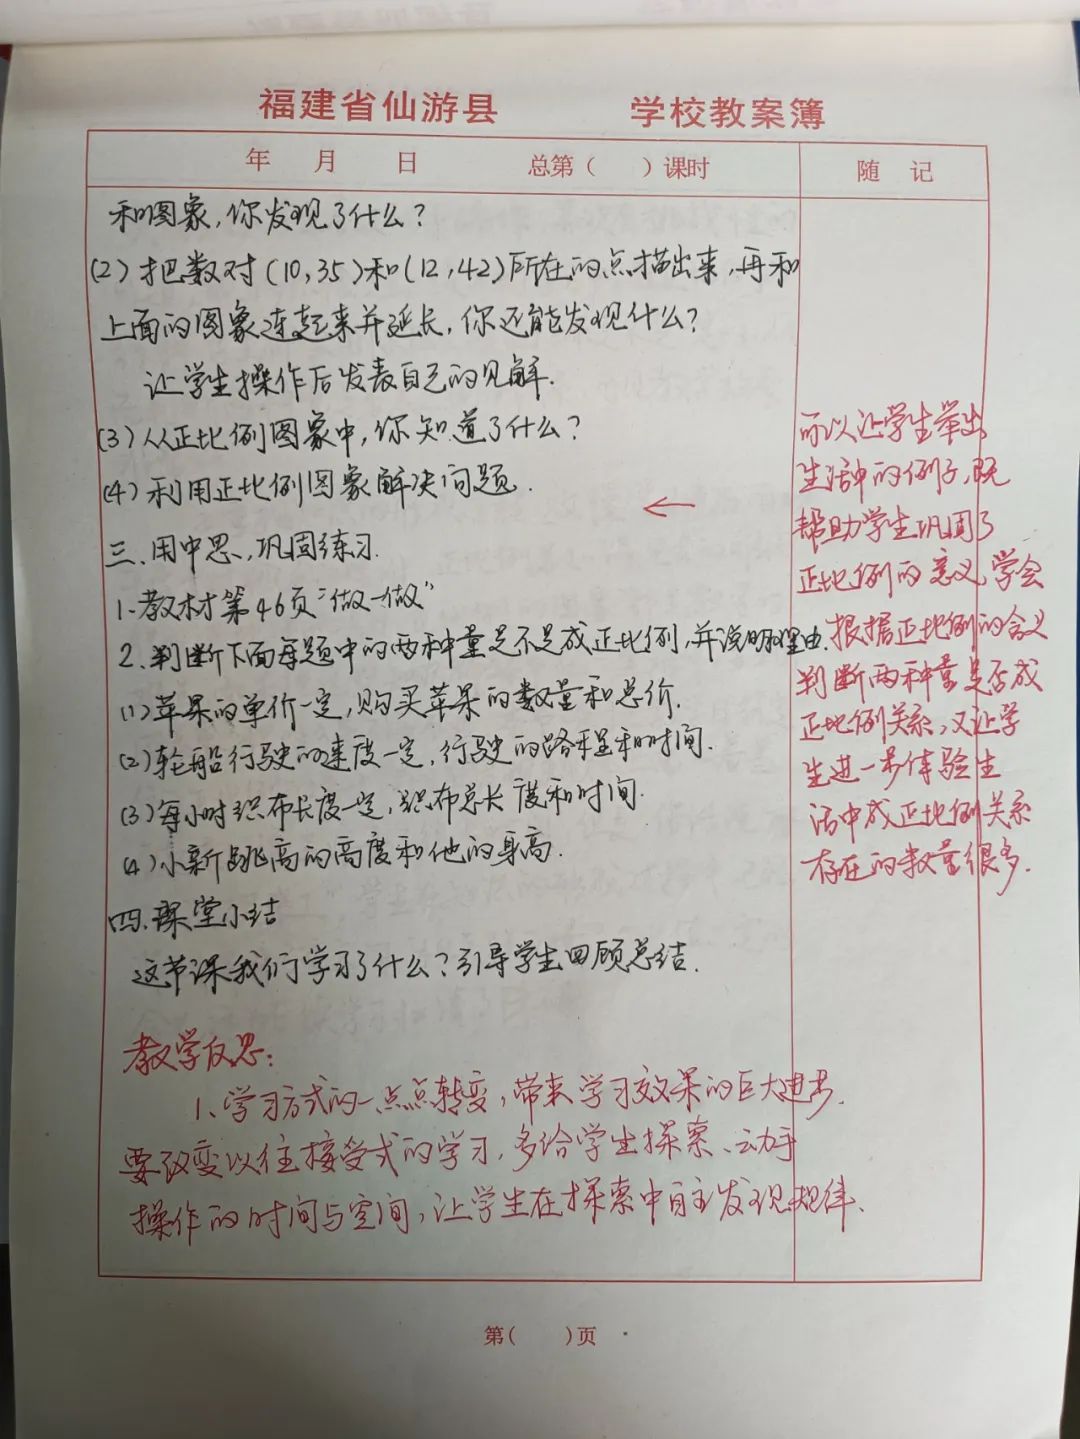 福建省仙游县 学校教案簿
年 月 日 总第( )课时 随 记
和图象,你发现了什么?
(2)把数对(10,35)和(12,42)所在的点描出来,再和
上面的图象连起来并延长,你还能发现什么?
让学生操作后发表自己的见解.
(3)从正比例图象中,你知道了什么?
(4)利用正比例图象解决问题.
三.用中思,巩固练习.
1.教材第46页“做一做”
2.判断下面每题中的两种量是不是成正比例,并说明理由.
(1)苹果的单价一定,购买苹果的数量和总价.
(2)轮船行驶的速度一定,行驶的路程和时间.
(3)每小时织布长度一定,织布总长度和时间.
(4)小新跳高的高度和他的身高.
四.课堂小结
这节课我们学习了什么?引导学生回顾总结.
教学反思:
1、学习方式的一点点转变,带来学习效果的巨大进步.
要改变以往接受式的学习,多给学生探索、动手
操作的时间与空间,让学生在探索中自主发现规律.
可以让学生举出
生活中的例子,既
帮助学生巩固了
正比例的意义,学会
根据正比例的含义
判断两种量是否成
正比例关系,又让学
生进一步体验生
活中成正比例关系
存在的数量很多.
第( )页